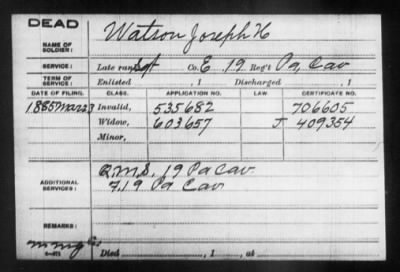 DEAD
NAME OF SOLDIER: Watson Joseph H
SERVICE: Late rank Sgt Co. E, 19 Reg't Pa, Cav
TERM OF SERVICE: Enlisted , 1 Discharged , 1
DATE OF FILING. CLASS. APPLICATION NO. LAW. CERTIFICATE NO.
1885 Mar 23 Invalid, 535682 706605
Widow, 603657 J 409354
Minor,
ADDITIONAL SERVICES: Q.M.S, 19 Pa Cav
F, 19 Pa Cav
REMARKS:
Died , 1 , at